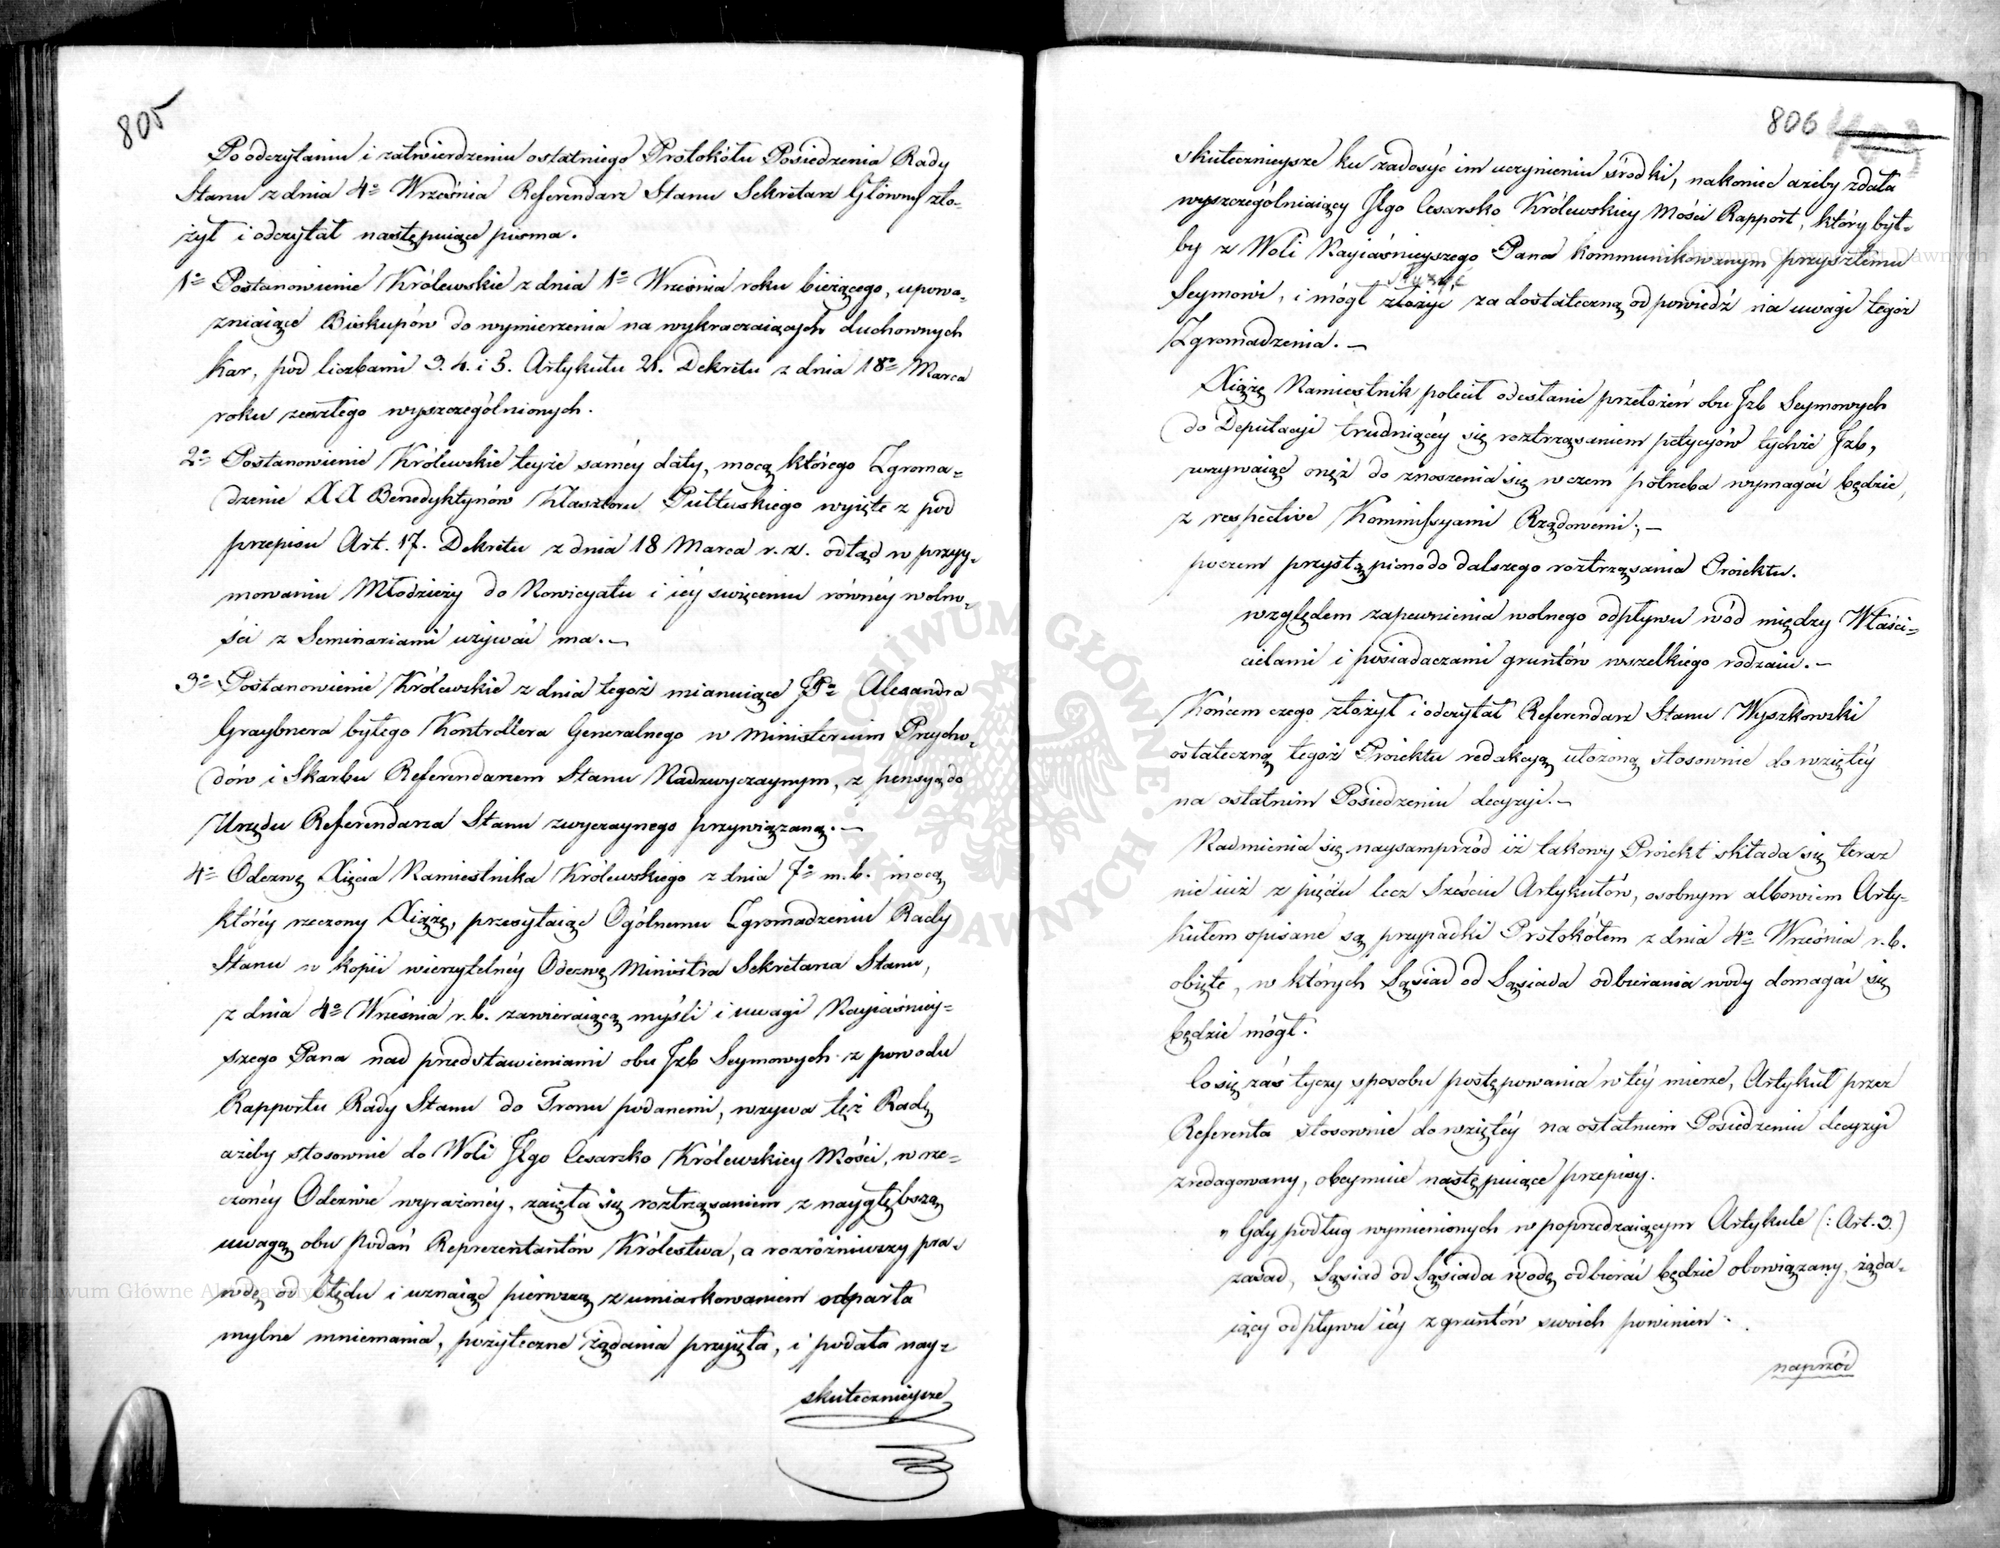 805
Po odczytaniu i zatwierdzeniu ostatniego Protokółu Posiedzenia Rady
Stanu z dnia 4º Września Referendarz Stanu Sekretarz Główny zło-
żył i odczytał następuiące pisma.
1º Postanowienie Królewskie z dnia 1º Września roku bieżącego, upowa-
żniaiące Biskupów do wymierzenia na wykraczaiących duchownych
kar, pod liczbami 3. 4. i 5. Artykułu 21. Dekretu z dnia 18º Marca
roku zeszłego wyszczególnionych.
2º Postanowienie Królewskie teyże saméy daty, mocą którego Zgroma-
dzenie XX Benedyktynów Klasztoru Pułtuskiego wyięte z pod
przepisu Art. 17. Dekretu z dnia 18 Marca r. z. odtąd w przyy-
mowaniu Młodzieży do Nowicyatu i iéy święceniu równéy wolno-
ści z Seminariami używać ma.—
3º Postanowienie Królewskie z dnia tegoż mianuiące JPº Alexandra
Graybnera byłego Kontrollera Generalnego w Ministerium Przycho-
dów i Skarbu Referendarzem Stanu Nadzwyczaynym, z pensyą do
Urzędu Referendarza Stanu zwyczaynego przywiązaną.—
4º Odezwę Xięcia Namiestnika Królewskiego z dnia 7º m. b. mocą
któréy rzeczony Xiążę, przesyłaiąc Ogólnemu Zgromadzeniu Rady
Stanu w kopii wierzytelnéy Odezwę Ministra Sekretarza Stanu,
z dnia 4º Września r. b. zawieraiącą myśli i uwagi Nayiaśniéy-
szego Pana nad przedstawieniami obu Jzb Seymowych z powodu
Rapportu Rady Stanu do Tronu podanemi, wzywa też Radę
ażeby stosownie do Woli Jego Cesarsko Królewskiey Mości, w rze-
czonéy Odezwie wyrażonéy, zaięła się roztrząsaniem z naygłębszą
uwagą obu podań Reprezentantów Królestwa, a rozróżniwszy pra-
wdę od błędu i uznaiąc pierwszą z umiarkowaniem odparła
mylne mniemania, pożyteczne żądania przyięła, i podała nay-
skutecznieysze
806
skutecznieysze ku zadosyć im uczynieniu środki, nakoniec ażeby zdała
wyszczególniaiący Jego Cesarsko Królewskiey Mości Rapport, który był-
by z Woli Nayiaśnieyszego Pana kommunikowanym przyszłemu
służyć
Seymowi, i mógł złożyć za dostateczną odpowiedź na uwagi tegoż
Zgromadzenia.—
Xiążę Namiestnik polecił odesłanie przełożeń obu Jzb Seymowych
do Deputacyi trudniącéy się roztrząsaniem petycyów tychże Jzb,
wzywaiąc oneż do znoszenia się w czem potrzeba wymagać będzie,
z respective Kommissyami Rządowemi;—
poczem przystąpiono do dalszego roztrząsania Proiektu.
względem zapewnienia wolnego odpływu wód między Właści-
cielami i posiadaczami gruntów wszelkiego rodzaiu.—
Końcem czego złożył i odczytał Referendarz Stanu Wyszkowski
ostateczną tegoż Proiektu redakcyą ułożoną stosownie do wziętéy
na ostatnim Posiedzeniu decyzyi.—
Nadmienia się naysamprzód iż takowy Proiekt składa się teraz
nie iuż z pięciu lecz sześciu Artykułów, osobnym albowiem Arty-
kułem opisane są przypadki Protokółem z dnia 4º Września r. b.
obięte, w których Sąsiad od Sąsiada odbierania wody domagać się
będzie mógł.
Co się zaś tyczy sposobu postępowania w téy mierze, Artykuł przez
Referenta stosownie do wziętéy na ostatniem Posiedzeniu decyzyi
zredagowany, obeymuie następuiące przepisy.
„ Gdy podług wymienionych w poprzedzaiącym Artykule (: Art. 3.)
zasad, Sąsiad od Sąsiada wodę odbierać będzie obowiązany, żąda-
iący odpływu iéy z gruntów swoich powinien
naprzód